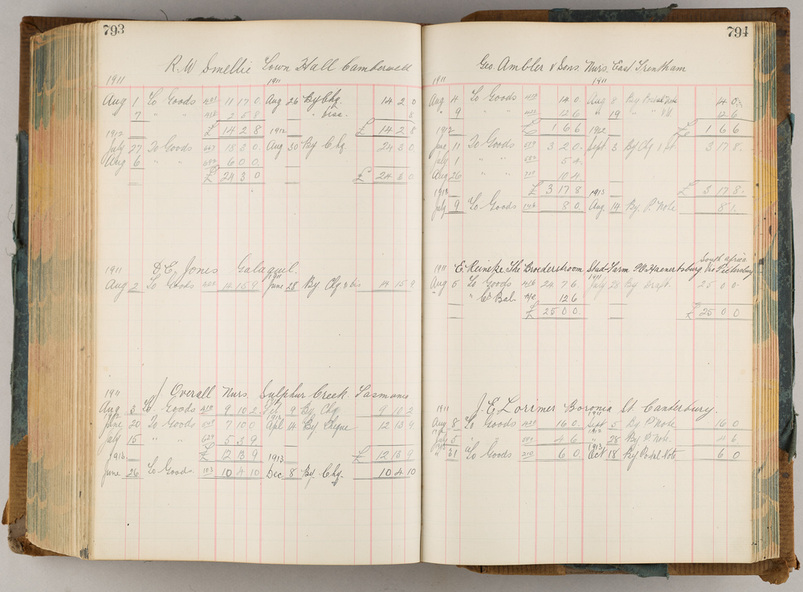 793
R. W. Smellie Town Hall Camberwell
1911 1911
Aug 1 To Goods 11 17 0 Aug 26 By Chq. 14 2 0
7 " " 2 5 8 " " 8
1912 £ 14 2 8 1912 £ 14 2 8
July 27 To Goods 18 3 0 Aug 30 By Chq 24 3 0
Aug 6 " " 6 0 0
£ 24 3 0 £ 24 3 0
1911 D. E. Jones Galaquil.
Aug 2 To Goods 14 15 9 June 28 By Chq & 14 15 9
1911 J Overall Nurs. Sulphur Creek Tasmania
Aug 3 To Goods 9 10 2 9 By Chq 9 10 2
June 20 To Goods 7 10 0 Apl 14 By Chque 12 13 9
July 15 " " 5 3 9
1913 £ 12 13 9 1913 £ 12 13 9
June 26 To Goods 10 4 10 Dec 8 By Chq. 10 4 10
794
Geo. Ambler & Sons. Nurs. East Trentham
1911 1911
Aug 4 To Goods 14 0 Aug 8 By Note 14 0
" 9 " " 12 6 " 19 " " 12 6
1912 £ 1 6 6 1912 £ 1 6 6
June 11 To Goods 3 2 0 Sept 3 By Chq 3 17 8
July 1 " " 5 4
Aug 26 " " 10 4
1913 £ 3 17 8 1913 £ 3 17 8
July 9 To Goods 8 0 Aug 14 By P. Note 8 1
South Africa
1911 E. Reineke The Broederstroom Stud Farm PO Haenertsburg via Pietersburg
Aug 5 To Goods 24 7 6 July 25 By Draft 25 0 0
" Bal 12 6
£ 25 0 0 £ 25 0 0
1911 J. E. Lorimer Boronia St Canterbury.
Aug 8 To Goods 16 0 Sept 5 By P. Note 16 0
July 5 " 4 6 " 28 By P. Note 4 6
" 31 To Goods 6 0 Oct 18 By Postal Note 6 0